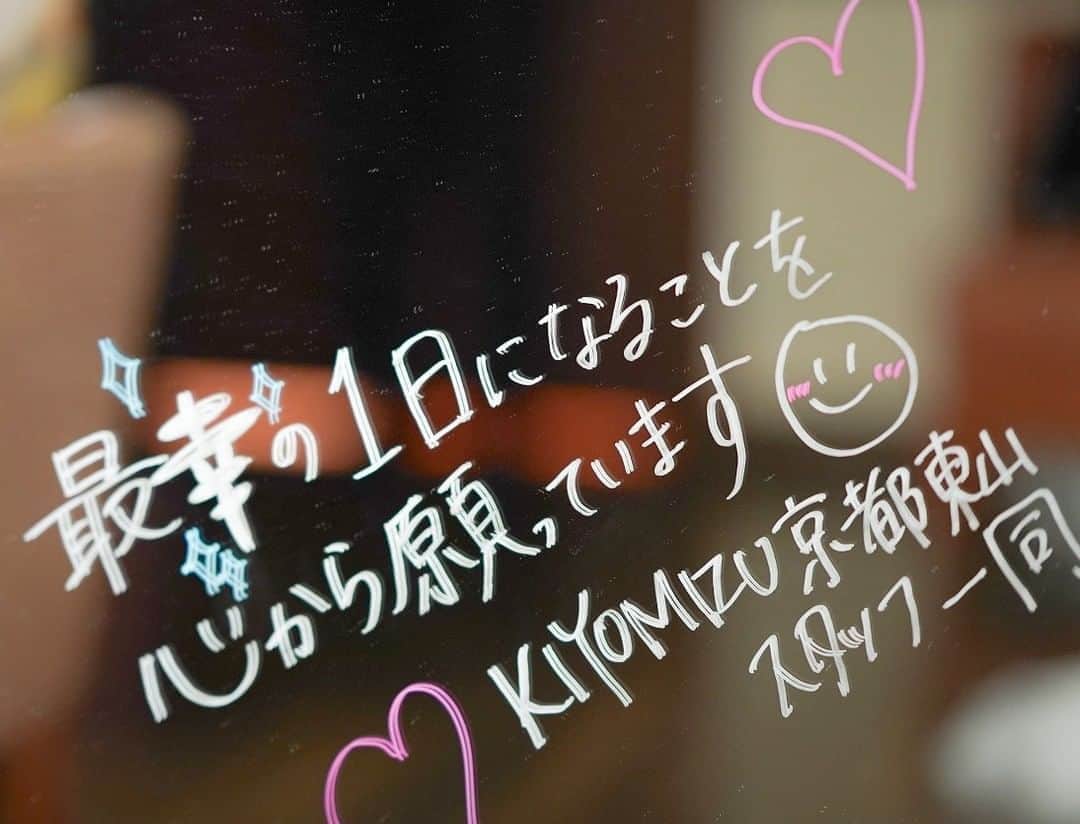 最幸の1日になることを
心から願っています
KIYOMIZU京都東山
スタッフ一同